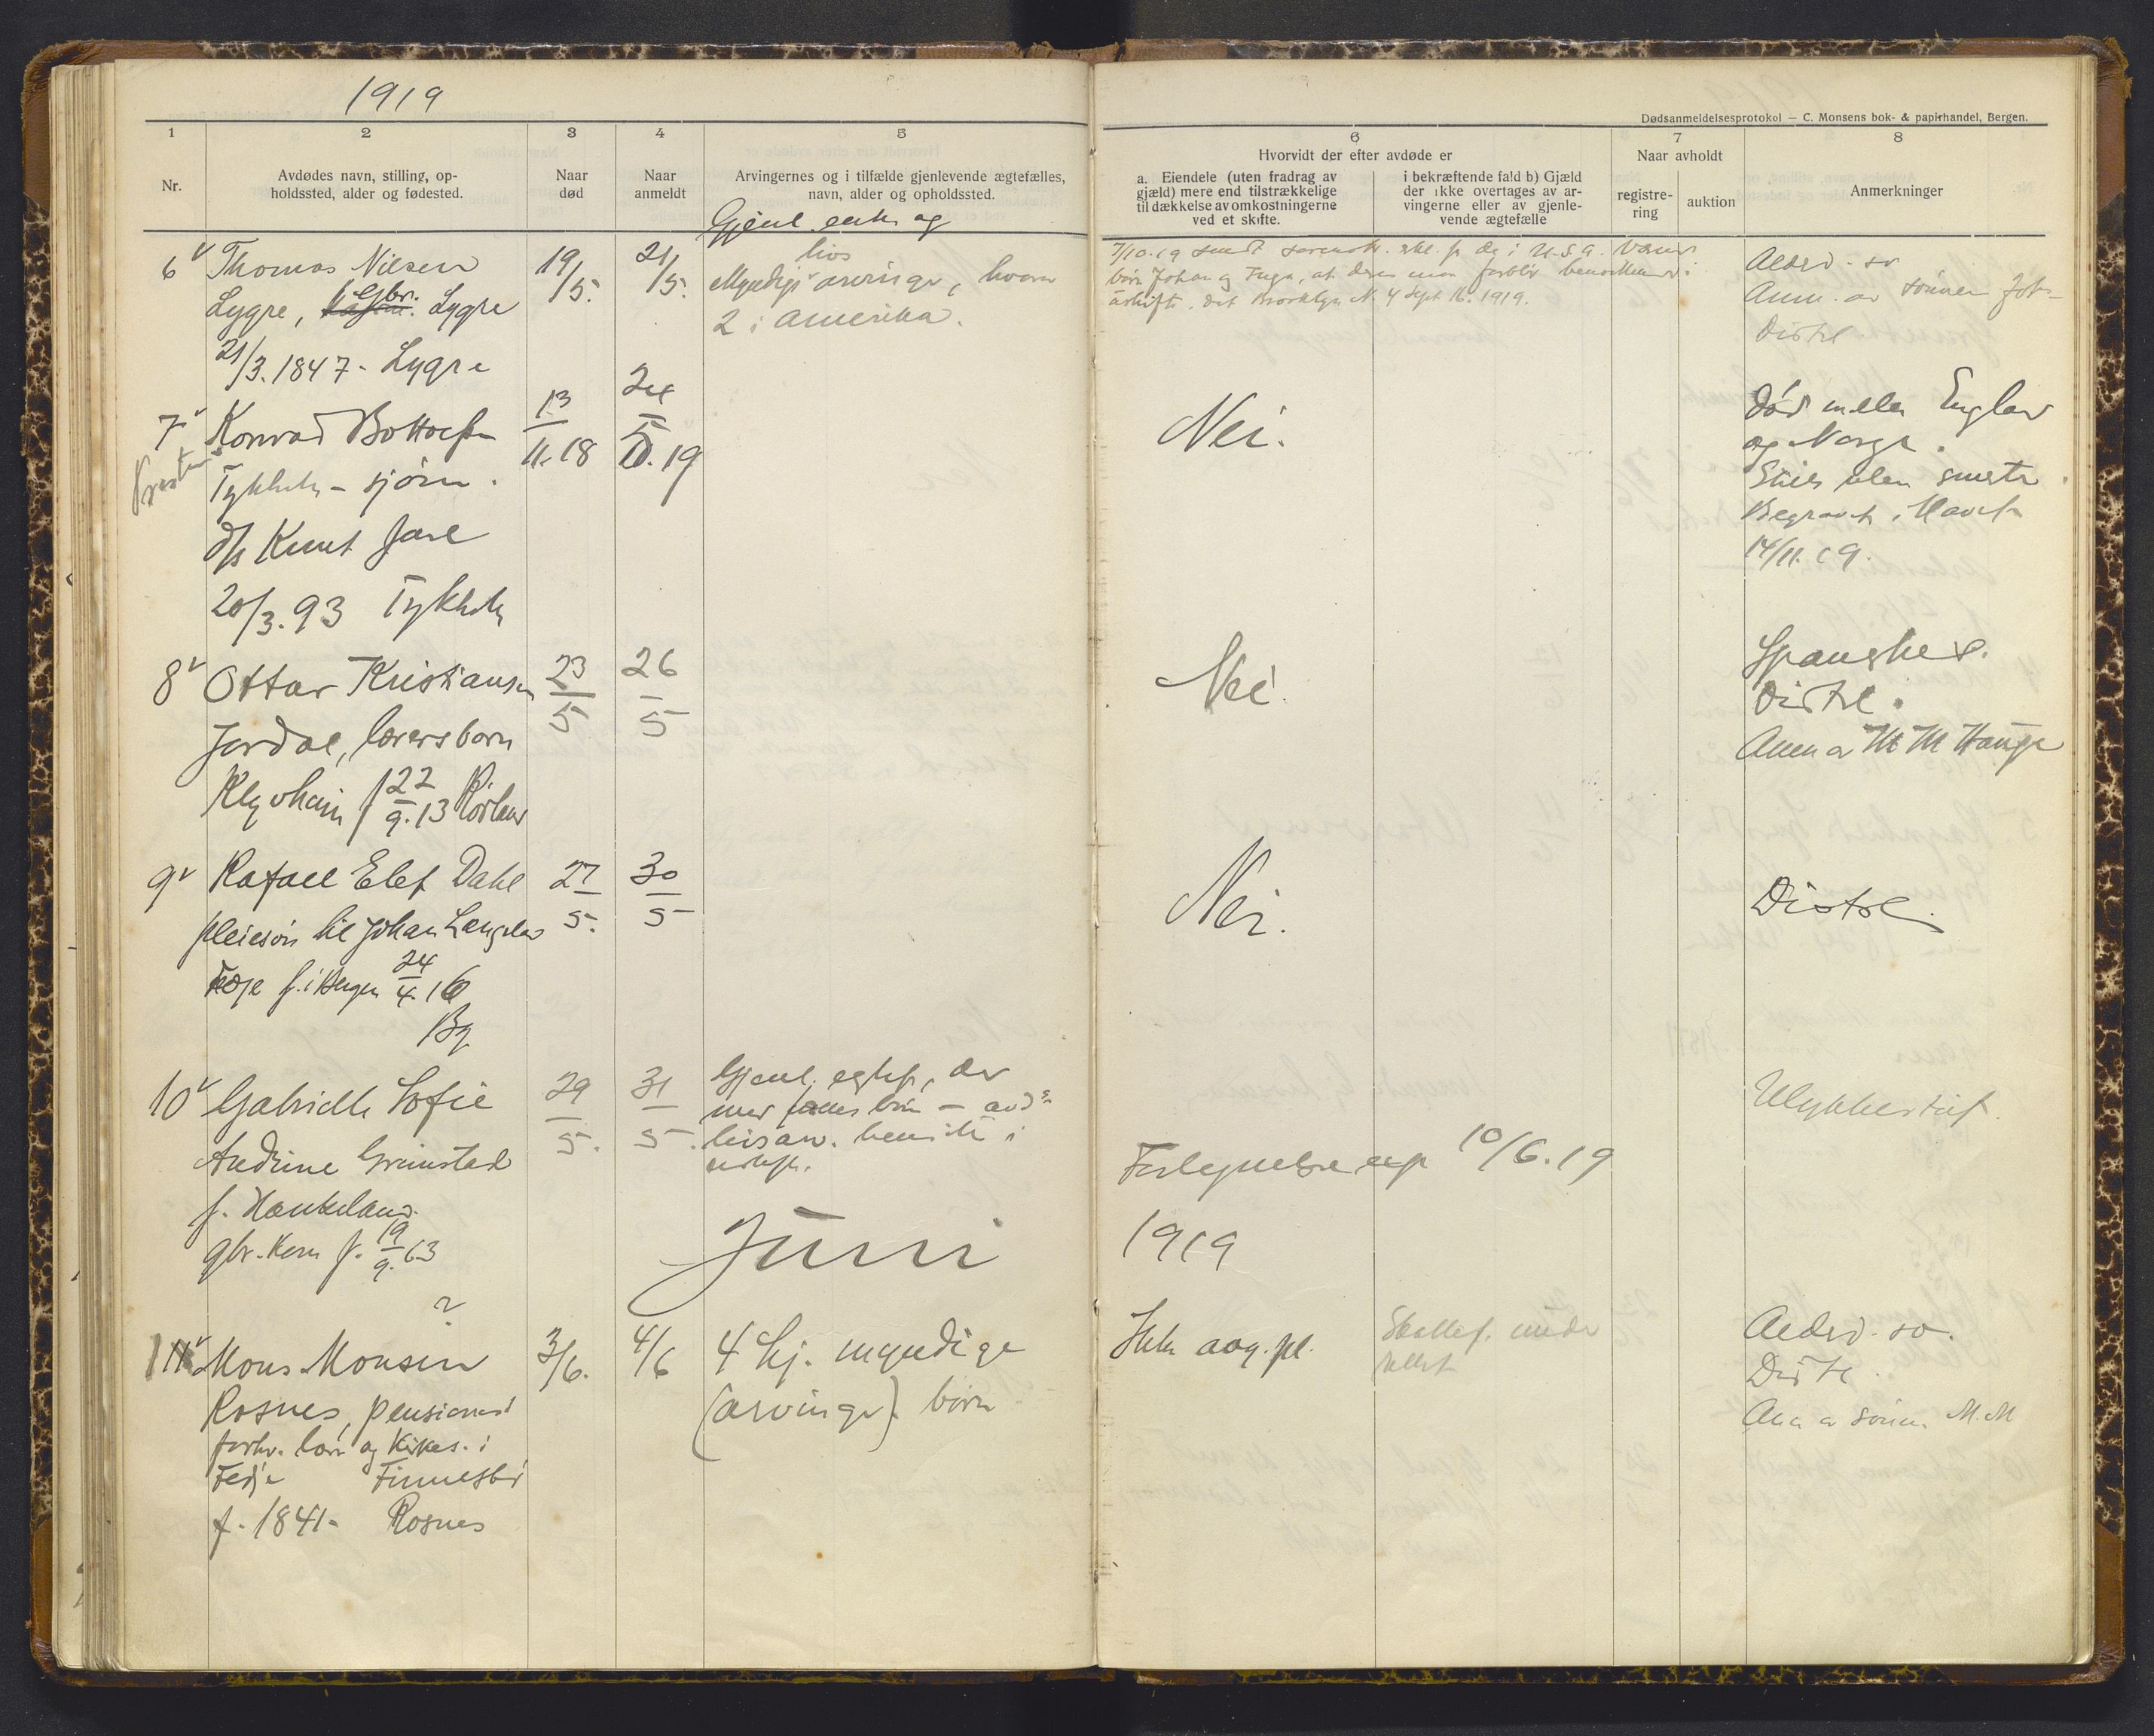 1919
Dødsanmeldelsesprotokol — C. Monsens bok- & papirhandel, Bergen.
1
2
3
4
5
6
7
8
Nr.
Avdødes navn, stilling, op-
holdssted, alder og fødested.
Naar
død
Naar
anmeldt
Arvingernes og i tilfælde gjenlevende ægtefælles,
navn, alder og opholdssted.
Hvorvidt der efter avdøde er
a. Eiendele (uten fradrag av
gjæld) mere end tilstrækkelige
til dækkelse av omkostningerne
ved et skifte.
i bekræftende fald b) Gjæld
der ikke overtages av ar-
vingerne eller av gjenle-
vende ægtefælle
Naar avholdt
registre-
ring
auktion
Anmerkninger
6
Thomas Nilsen
Lygre, Gbr. Lygre
21/3. 1847 - Lygre
19/5.
21/5.
Gjenl. enke og
livs
Myndige arvinger, hvorav
2 i Amerika.
7/10.19 sendt
børn Johan og Inga, at deres mor forblir
uskifte. dat Brooklyn N. Y Sept 16. 1919.
Alderd. sv
Anm. av sønnen Joh
Distrl
7
Konrad
sjøm.
d/s Knut Jarl
20/3. 93
13
11. 18
24
5. 19
Nei.
død mellem England
og Norge.
Begravet i
14/11. 19.
8
Ottar Kristiansen
Jordal, lærersbarn
f 22
9. 13
23
5
26
5
Nei.
Spanskes.
Distrl.
Anm av M M Hauge
9
Rafael Elef Dahl
pleiesøn til Johan Langeland
f. i Bergen 24
4. 16
Bg
27
5.
30
5
Nei.
Distrl.
10
Gabrielle Sofie
Andrine Grimstad
f. Haukeland
gbr. kone f. 19
9. 63
?
29
5.
31
5.
Gjenl. egtef., der
med fælles børn — avd s
livsarv. hensitter i
uskifte.
10/6. 19
Ulykkestilf.
Juni
1919
11
Mons Monsen
Rosnes, pensionert
forhv. lærer og kirkes. i
Fedje
f. 1841 - Rosnes
3/6.
4/6
4 lj. myndige
(arvinger). børn
Ikke aog. pl.
Alderd. sv.
Distrl.
Anm av sønn. M. M